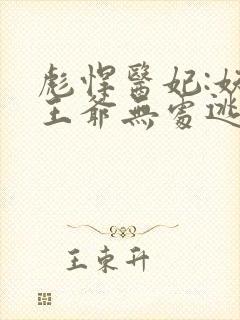 彪悍醫妃:妖
王爺無處逃
王東升